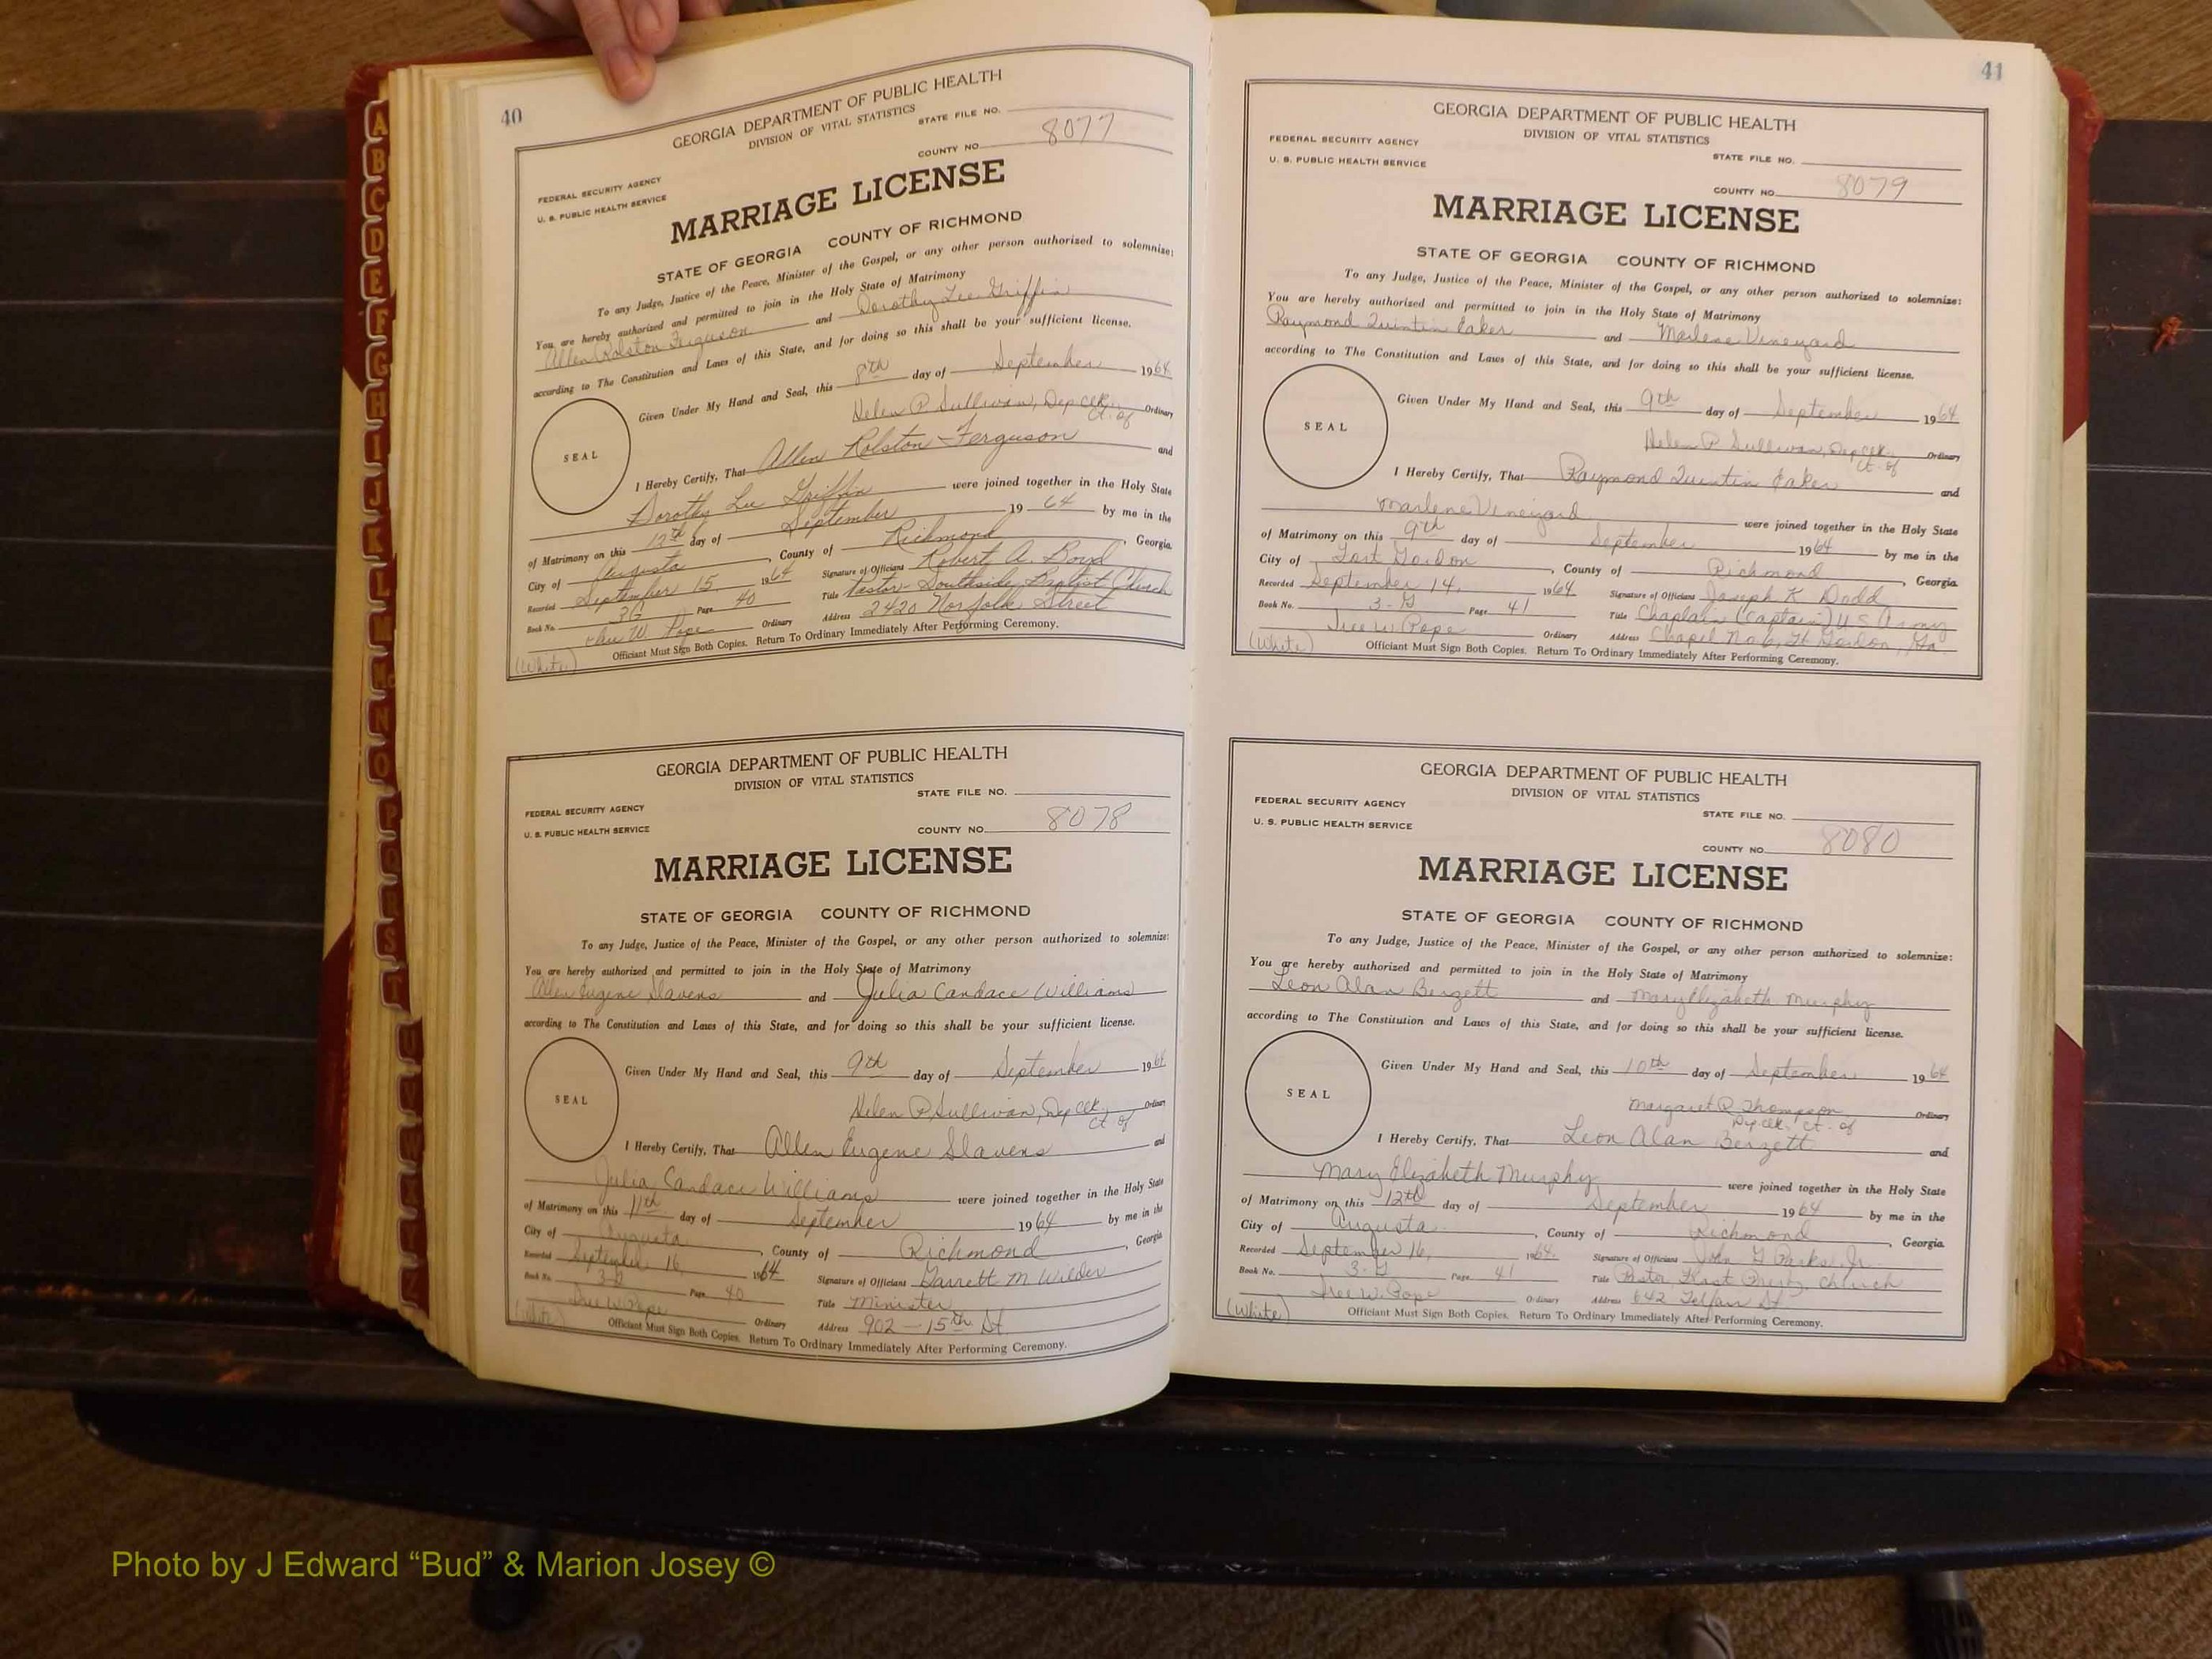 40
GEORGIA DEPARTMENT OF PUBLIC HEALTH
DIVISION OF VITAL STATISTICS
STATE FILE NO.
FEDERAL SECURITY AGENCY
U. S. PUBLIC HEALTH SERVICE
COUNTY NO. 8077
MARRIAGE LICENSE
STATE OF GEORGIA COUNTY OF RICHMOND
To any Judge, Justice of the Peace, Minister of the Gospel, or any other person authorized to solemnize:
You are hereby authorized and permitted to join in the Holy State of Matrimony
Allen Rolston Ferguson and Dorothy Lee Griffin
according to The Constitution and Laws of this State, and for doing so this shall be your sufficient license.
Given Under My Hand and Seal, this 8th day of September 1964
SEAL
Helen P. Sullivan, Dep Clk. Ct. of Ordinary
I Hereby Certify, That Allen Rolston Ferguson and
Dorothy Lee Griffin were joined together in the Holy State
of Matrimony on this 12th day of September 19 64 by me in the
City of Augusta, County of Richmond, Georgia.
Recorded September 15, 1964 Signature of Officiant Robert A. Boyd
Book No. 3G Page 40 Title Pastor Southside Baptist Church
W. Pope Ordinary Address 2420 Norfolk Street
(White) Officiant Must Sign Both Copies. Return To Ordinary Immediately After Performing Ceremony.
GEORGIA DEPARTMENT OF PUBLIC HEALTH
DIVISION OF VITAL STATISTICS
STATE FILE NO.
FEDERAL SECURITY AGENCY
U. S. PUBLIC HEALTH SERVICE
COUNTY NO. 8078
MARRIAGE LICENSE
STATE OF GEORGIA COUNTY OF RICHMOND
To any Judge, Justice of the Peace, Minister of the Gospel, or any other person authorized to solemnize:
You are hereby authorized and permitted to join in the Holy State of Matrimony
Allen Eugene Slavens and Julia Candace Williams
according to The Constitution and Laws of this State, and for doing so this shall be your sufficient license.
Given Under My Hand and Seal, this 9th day of September 1964
SEAL
Helen P. Sullivan, Dep Clk. Ct. of Ordinary
I Hereby Certify, That Allen Eugene Slavens and
Julia Candace Williams were joined together in the Holy State
of Matrimony on this 11th day of September 1964 by me in the
City of Augusta, County of Richmond, Georgia
Recorded September 16, 1964 Signature of Officiant Garrett M. Wilder
Book No. Page 40 Title Minister
W. Pope Ordinary Address 902 - 15th St
(White) Officiant Must Sign Both Copies. Return To Ordinary Immediately After Performing Ceremony.
41
GEORGIA DEPARTMENT OF PUBLIC HEALTH
DIVISION OF VITAL STATISTICS
FEDERAL SECURITY AGENCY
U. S. PUBLIC HEALTH SERVICE
STATE FILE NO.
COUNTY NO. 8079
MARRIAGE LICENSE
STATE OF GEORGIA COUNTY OF RICHMOND
To any Judge, Justice of the Peace, Minister of the Gospel, or any other person authorized to solemnize:
You are hereby authorized and permitted to join in the Holy State of Matrimony
Raymond Quintin Eaker and Marlene Vineyard
according to The Constitution and Laws of this State, and for doing so this shall be your sufficient license.
Given Under My Hand and Seal, this 9th day of September 1964
SEAL
Helen P. Sullivan, Dep Clk. Ct. of Ordinary
I Hereby Certify, That Raymond Quintin Eaker and
Marlene Vineyard were joined together in the Holy State
of Matrimony on this 9th day of September 1964 by me in the
City of Fort Gordon, County of Richmond, Georgia.
Recorded September 14, 1964 Signature of Officiant Joseph K. Dodd
Book No. 3-G Page 41 Title Chaplain (Captain) U S Army
W. Pope Ordinary Address Chapel No 6, Ft. Gordon, Ga
(White) Officiant Must Sign Both Copies. Return To Ordinary Immediately After Performing Ceremony.
GEORGIA DEPARTMENT OF PUBLIC HEALTH
DIVISION OF VITAL STATISTICS
FEDERAL SECURITY AGENCY
U. S. PUBLIC HEALTH SERVICE
STATE FILE NO.
COUNTY NO. 8080
MARRIAGE LICENSE
STATE OF GEORGIA COUNTY OF RICHMOND
To any Judge, Justice of the Peace, Minister of the Gospel, or any other person authorized to solemnize:
You are hereby authorized and permitted to join in the Holy State of Matrimony
Leon Alan Berzett and Mary Elizabeth Murphy
according to The Constitution and Laws of this State, and for doing so this shall be your sufficient license.
Given Under My Hand and Seal, this 10th day of September 1964
SEAL
Margaret R. Thompson Ordinary
Dep clk. ct. of
I Hereby Certify, That Leon Alan Berzett and
Mary Elizabeth Murphy were joined together in the Holy State
of Matrimony on this 12th day of September 1964 by me in the
City of Augusta, County of Richmond, Georgia.
Recorded September 16, 1964. Signature of Officiant John G Parks Jr.
Book No. 3-G Page 41 Title Pastor First Presby. Church
W. Pope Ordinary Address 642 Telfair St
(White) Officiant Must Sign Both Copies. Return To Ordinary Immediately After Performing Ceremony.
A
B
C
D
E
F
G
H
I
J
K
L
N
O
P
R
S
T
Photo by J Edward “Bud” & Marion Josey ©